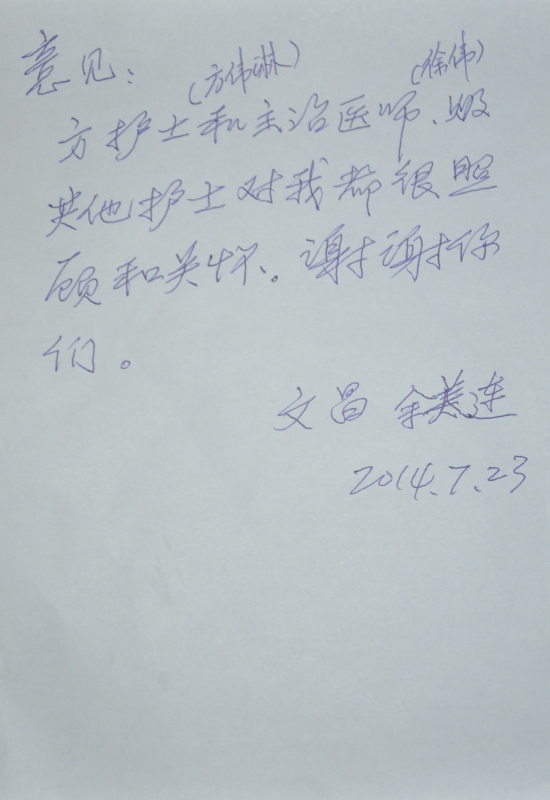 意见：
(方伟琳) (徐伟)
方护士和主治医师、及
其他护士对我都很照
顾和关怀。谢谢你
们。
文昌 余美连
2014.7.23